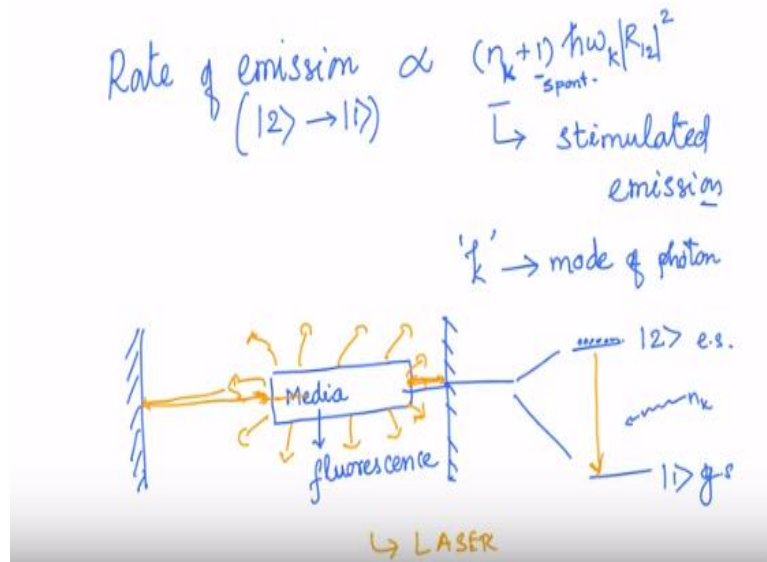 Rate of emission ∝ (n_k+1) ħω_k|R_12|²
spont.
(|2⟩→|1⟩)
↳ stimulated
emission
'k' → mode of photon
|2⟩ e.s.
Media
n_k
fluorescence
|1⟩ g.s
↳ LASER